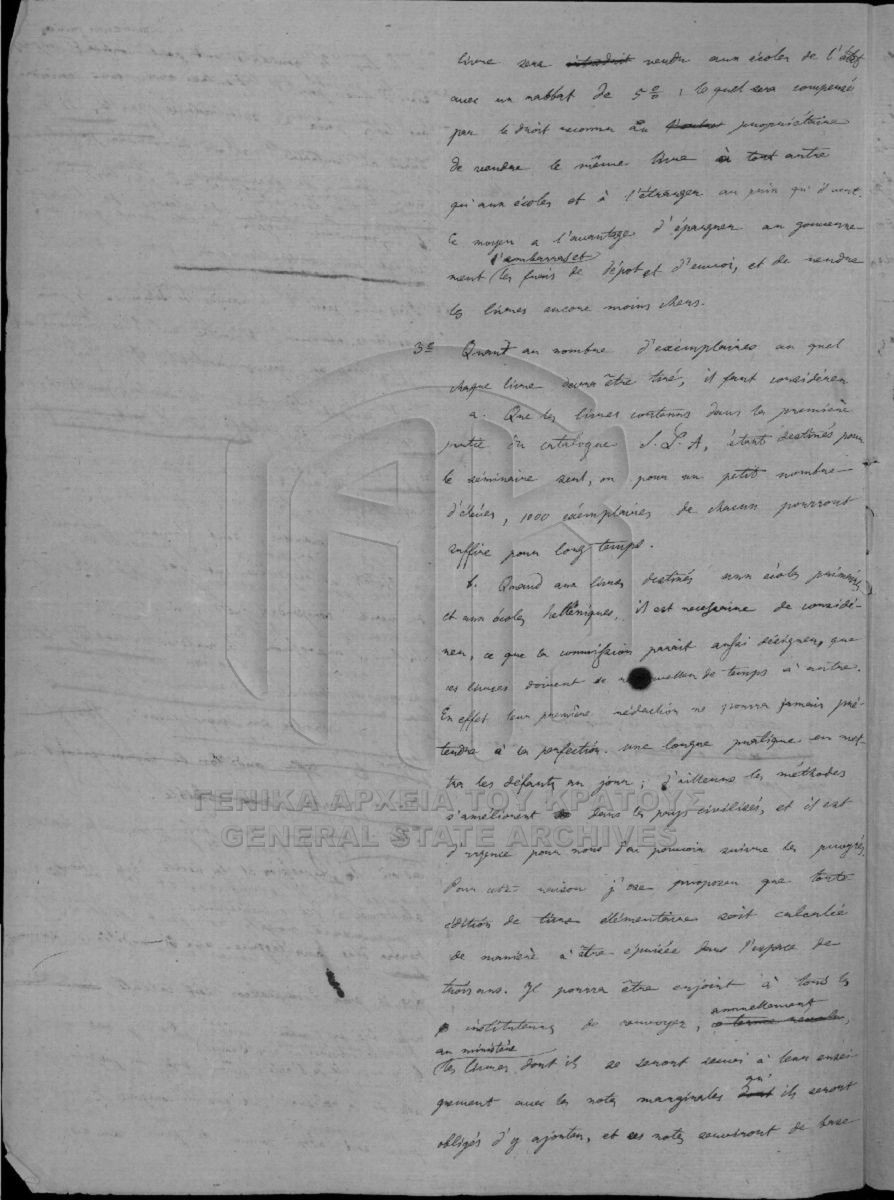 livre sera vendu aux écoles de l'état
avec un rabbat de 5 %; lequel sera compensé
par le droit reconnu au propriétaire
de vendre le même livre à tout autre
qu'aux écoles et à l'étranger au prix qu'il veut.
Ce moyen a l'avantage d'épargner au gouverne-
l'embarras et
ment les frais de dépot et d'envoi, et de rendre
les livres encore moins chers.
3º Quant au nombre d'exémplaires au quel
chaque livre devra être tiré, il faut considérer
a. Que les livres contenus dans la première
partie du catalogue S. L. A, étant destinés pour
le séminaire seul, ou pour un petit nombre
d'élèves, 1000 exémplaires de chacun pourront
suffire pour long-temps.
b. Quand aux livres destinés aux écoles primaires
et aux écoles helléniques, il est necessaire de considé-
rer, ce que la commission parait aussi désigner, que
ces livres doivent se renouveller de temps à autre.
En effet leur première rédaction ne pourra jamais pré-
tendre à la perfection. une longue pratique en met-
tra les défauts au jour; d'ailleurs les méthodes
s'améliorent dans les pays civilisés, et il est
d'urgence pour nous d'en pouvoir suivre les progrés.
Pour cette raison j'ose proposer que toute
édition de livre élémentaire soit calculée
de manière à être épuisée dans l'espace de
trois ans. Il pourra être enjoint à tous les
instituteurs de renvoyer, annuellement,
au ministère
les livres dont ils se seront servi à leur ensei-
gnement avec les notes marginales qu'ils seront
obligés d'y ajouter, et ces notes serviront de base
ΓΕΝΙΚΑ ΑΡΧΕΙΑ ΤΟΥ ΚΡΑΤΟΥΣ
GENERAL STATE ARCHIVES